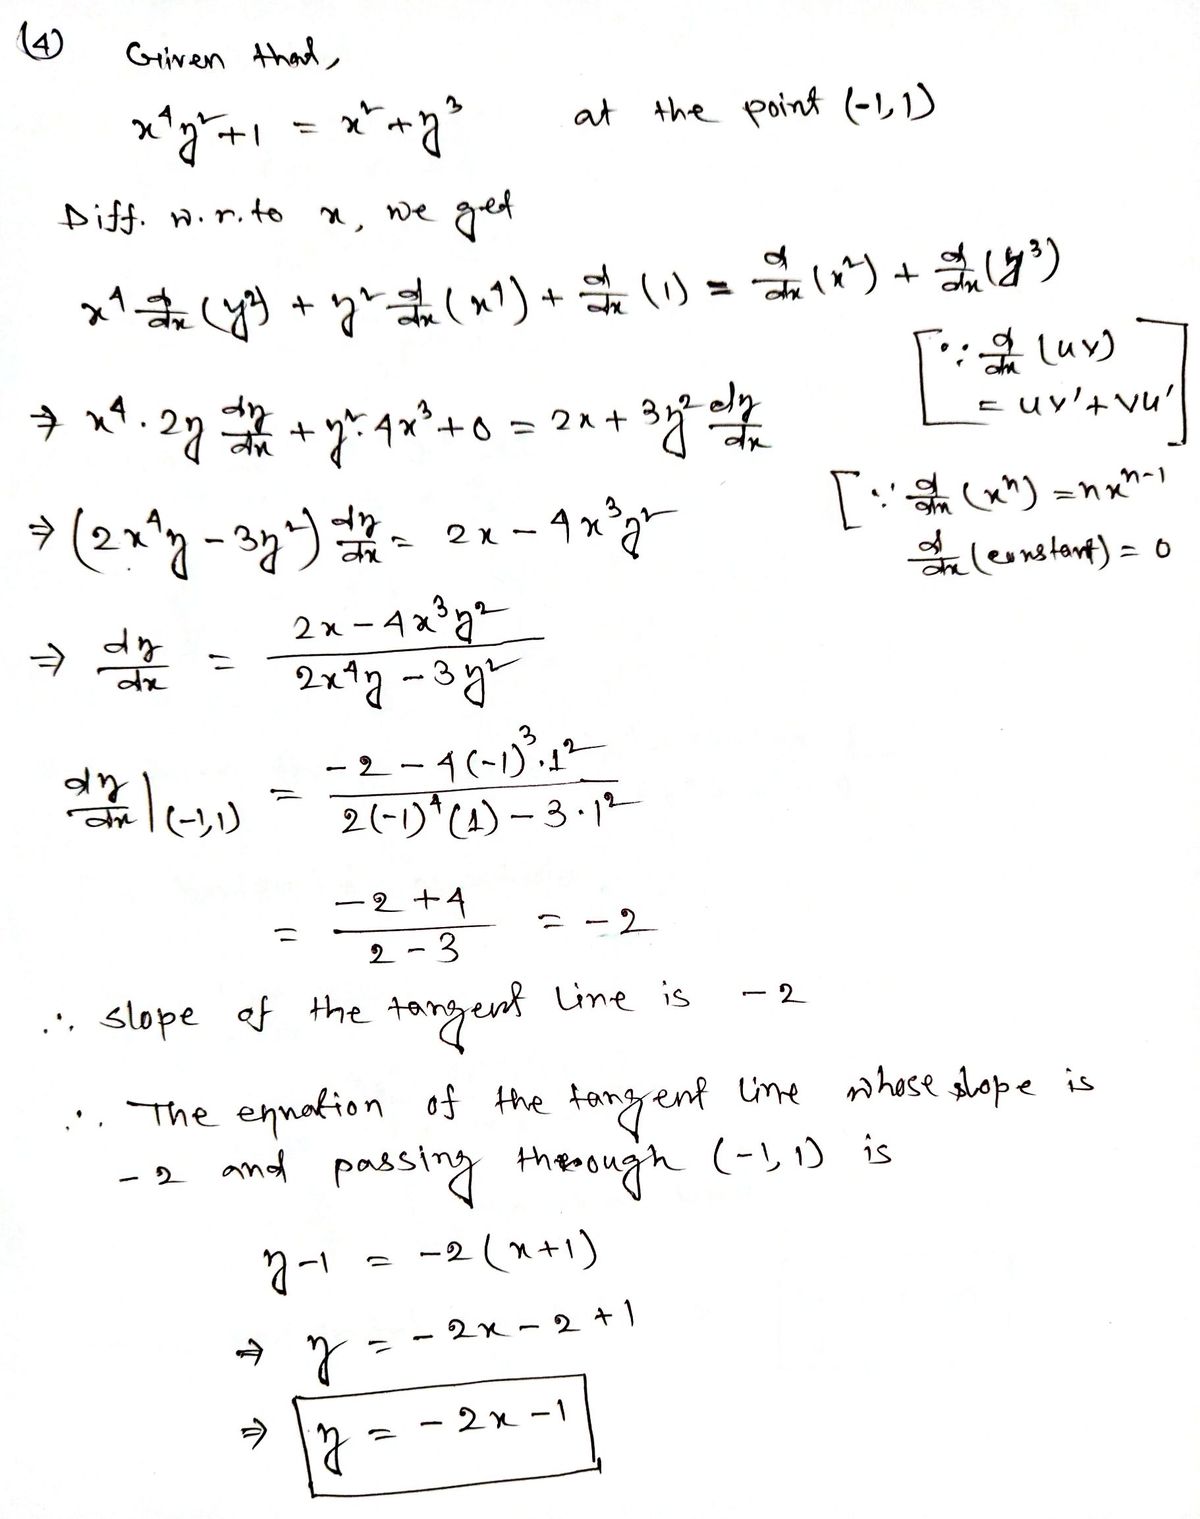 (4) Given that,
x⁴y²+1 = x²+y³ at the point (-1,1)
Diff. w.r.to x, we get
x⁴ d/dx (y²) + y² d/dx (x⁴) + d/dx (1) = d/dx (x²) + d/dx (y³)
[∵ d/dx (uv)
= uv'+vu']
⇒ x⁴·2y dy/dx + y²·4x³+0 = 2x+3y² dy/dx
[∵ d/dx (xⁿ) = nxⁿ⁻¹
d/dx (constant) = 0
⇒ (2x⁴y-3y²) dy/dx = 2x-4x³y²
⇒ dy/dx = (2x-4x³y²)/(2x⁴y-3y²)
dy/dx |(-1,1) = (-2-4(-1)³·1²)/(2(-1)⁴(1)-3·1²)
= (-2+4)/(2-3) = -2
∴ slope of the tangent line is -2
∴ The equation of the tangent line whose slope is
-2 and passing through (-1,1) is
y-1 = -2(x+1)
⇒ y = -2x-2+1
⇒ y = -2x-1